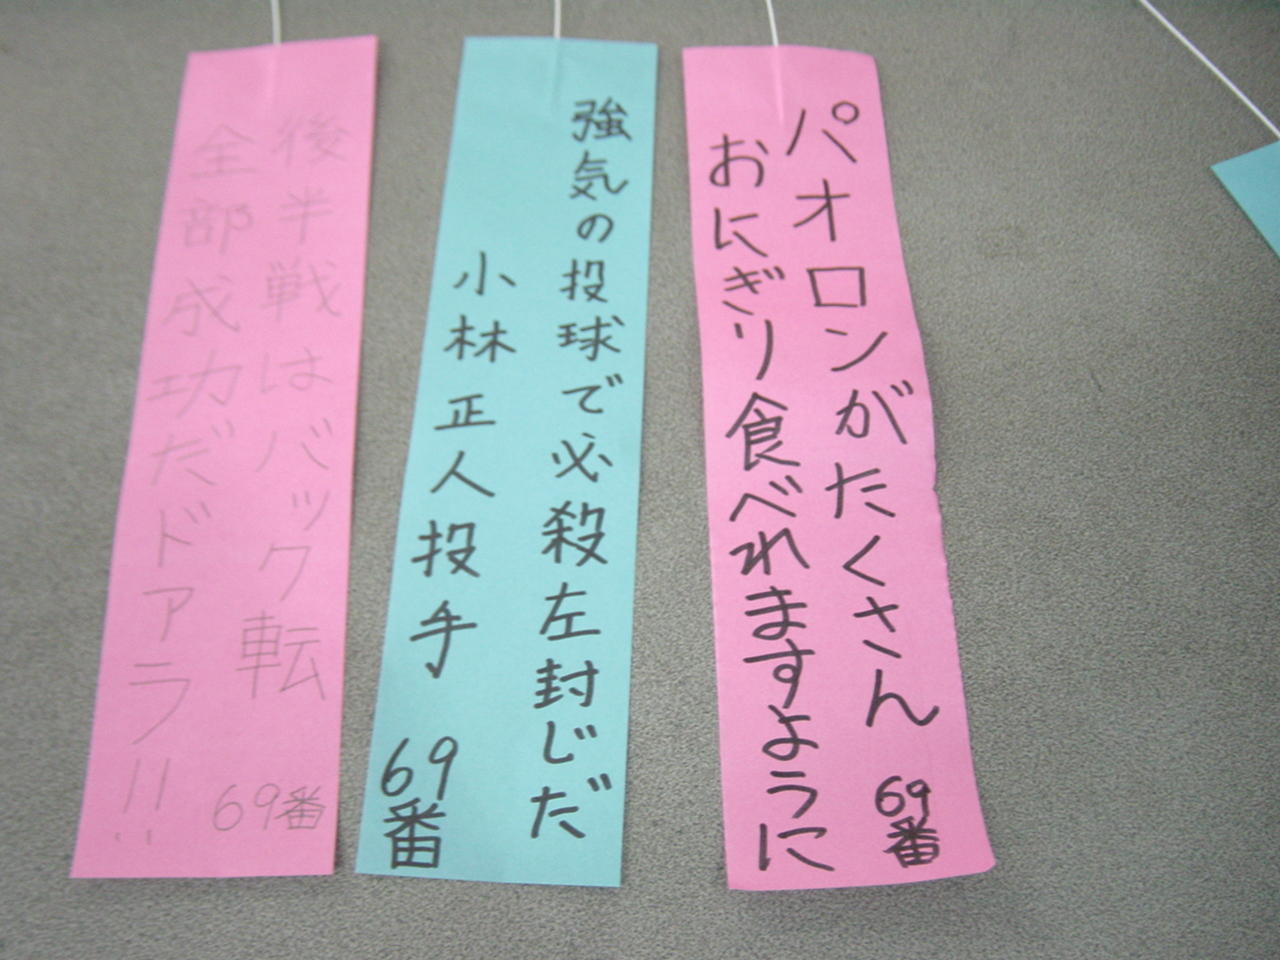 パオロンがたくさん
おにぎり食べれますように
69番
強気の投球で必殺左封じだ
小林正人投手
69番
後半戦はバック転
全部成功だドアラ!!
69番